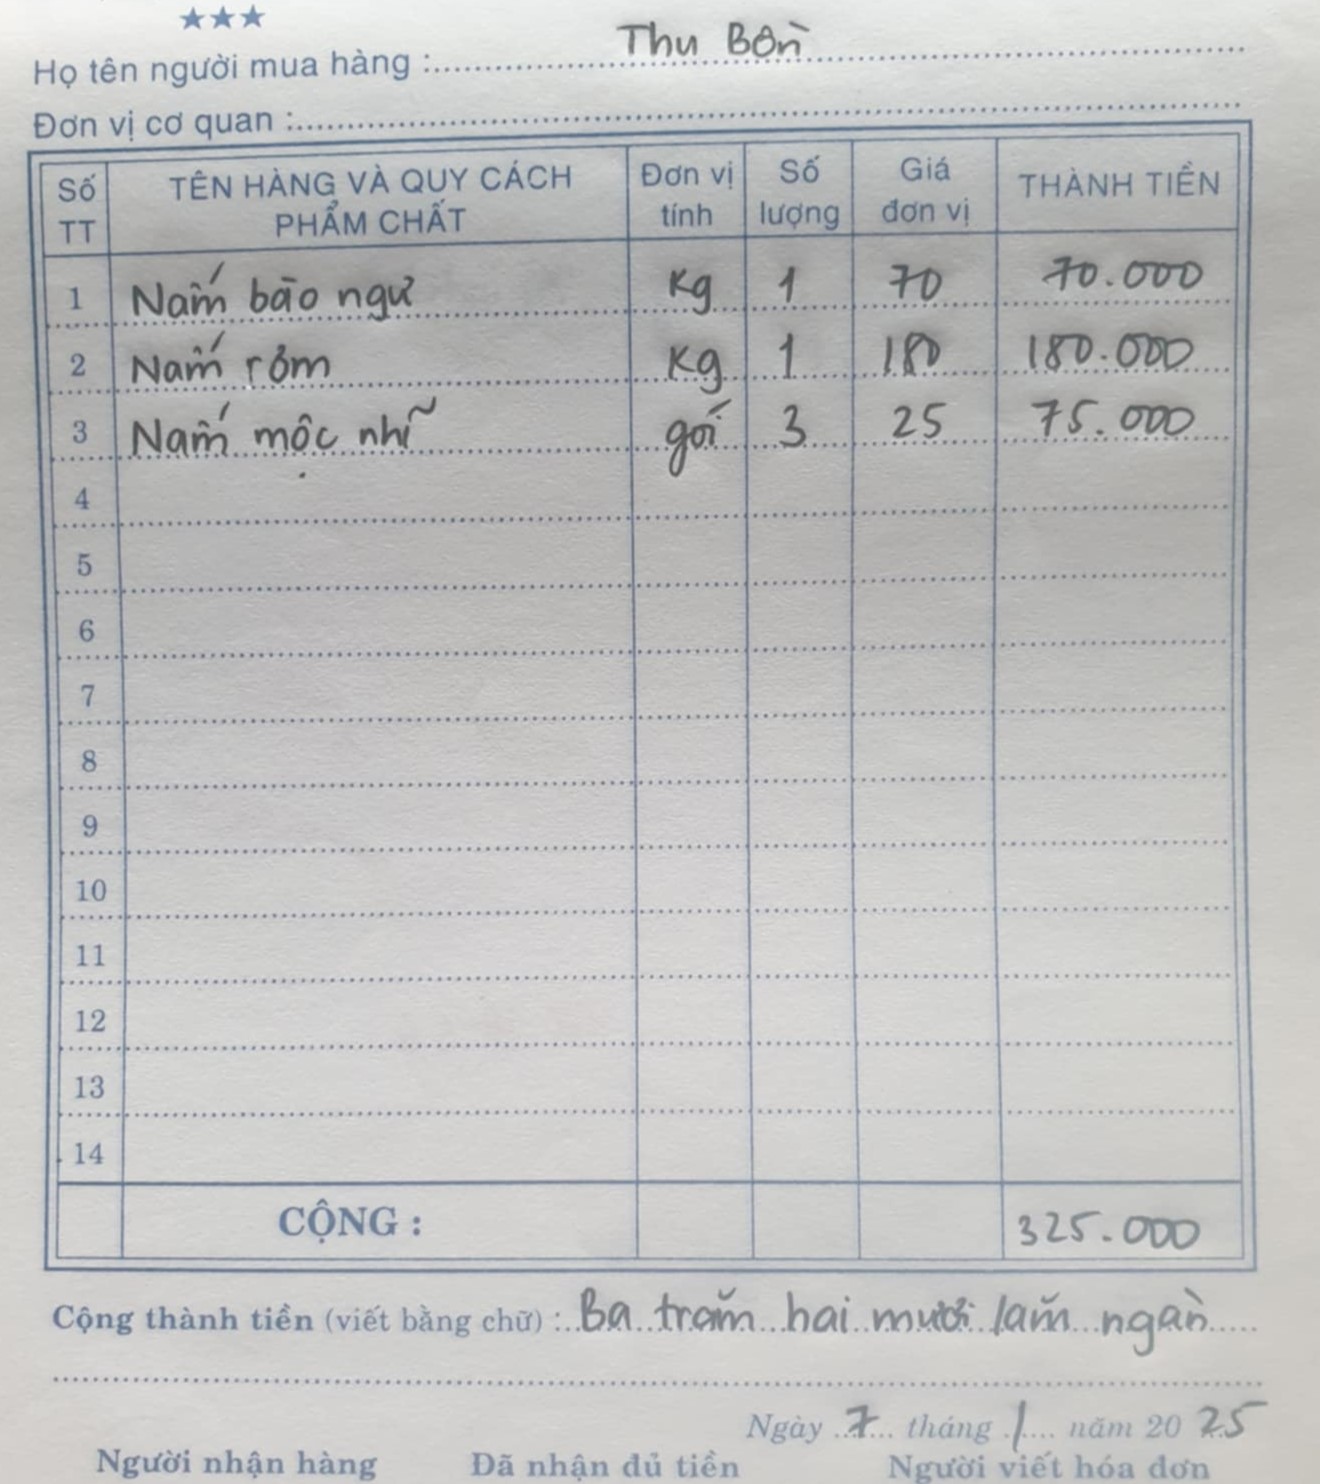 ★★★
Họ tên người mua hàng : Thu Bồn
Đơn vị cơ quan :
Số TT | TÊN HÀNG VÀ QUY CÁCH PHẨM CHẤT | Đơn vị tính | Số lượng | Giá đơn vị | THÀNH TIỀN
1 Nấm bào ngư Kg 1 70 70.000
2 Nấm rơm Kg 1 180 180.000
3 Nấm mộc nhĩ gói 3 25 75.000
4
5
6
7
8
9
10
11
12
13
14
CỘNG : 325.000
Cộng thành tiền (viết bằng chữ) : Ba trăm hai mươi lăm ngàn
Ngày 7 tháng 1 năm 2025
Người nhận hàng Đã nhận đủ tiền Người viết hóa đơn